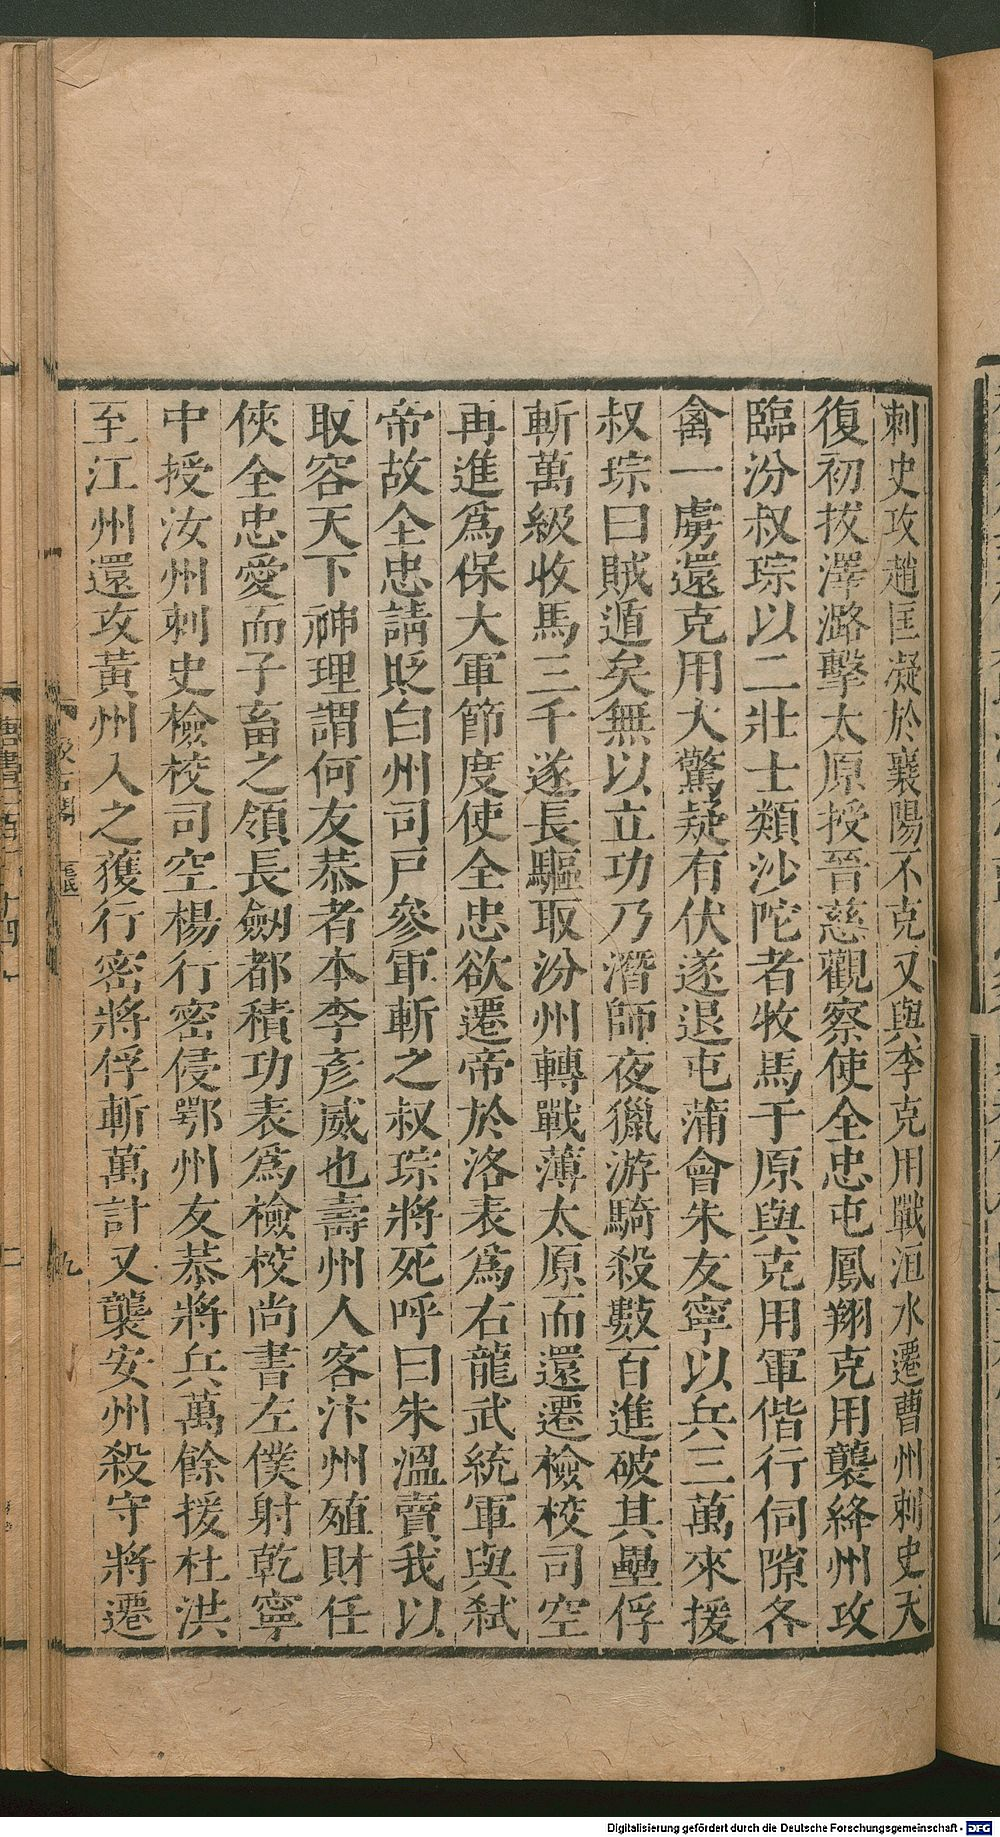 刺史攻趙匡凝於襄陽不克又與李克用戰洹水遷曹州刺史天
復初拔澤潞擊太原授晉慈觀察使全忠屯鳳翔克用襲絳州攻
臨汾叔琮以二壯士類沙陀者牧馬于原與克用軍偕行伺隙各
禽一虜還克用大驚疑有伏遂退屯蒲會朱友寧以兵三萬來援
叔琮曰賊遁矣無以立功乃潛師夜獵游騎殺數百進破其壘俘
斬萬級收馬三千遂長驅取汾州轉戰薄太原而還遷檢校司空
再進爲保大軍節度使全忠欲遷帝於洛表爲右龍武統軍與弒
帝故全忠請貶白州司戶參軍斬之叔琮將死呼曰朱溫賣我以
取容天下神理謂何友恭者本李彥威也壽州人客汴州殖財任
俠全忠愛而子畜之領長劒都積功表爲檢校尚書左僕射乾寧
中授汝州刺史檢校司空楊行密侵鄂州友恭將兵萬餘援杜洪
至江州還攻黃州入之獲行密將俘斬萬計又襲安州殺守將遷
九
Digitalisierung gefördert durch die Deutsche Forschungsgemeinschaft - DFG